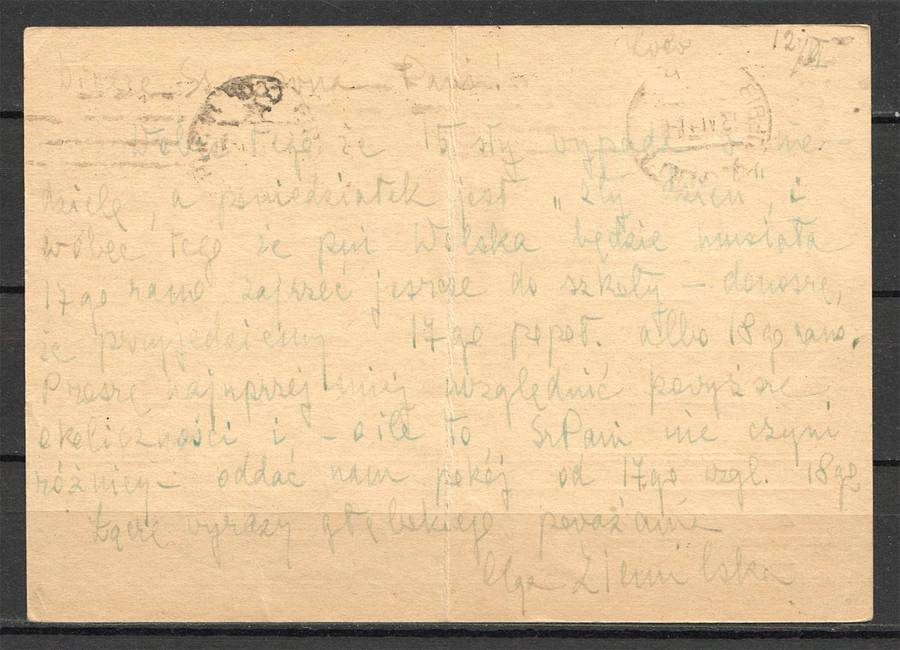 12/VI
Wobec tego że 15 sty wypada w nie-
dzielę, a poniedziałek jest „zły dzień", i
wobec tego że pni Wolska będzie musiała
17-go rano zajrzeć jeszcze do szkoły – donoszę,
że przyjedziemy 17-go popoł. albo 18 go rano.
Proszę najuprzejmiej uwzględnić powyższe
okoliczności i – o ile to Sz Pani nie czyni
różnicy – oddać nam pokój od 17.go wzgl. 18 go
Łączę wyrazy głębokiego poważania
Olga Ziemilska